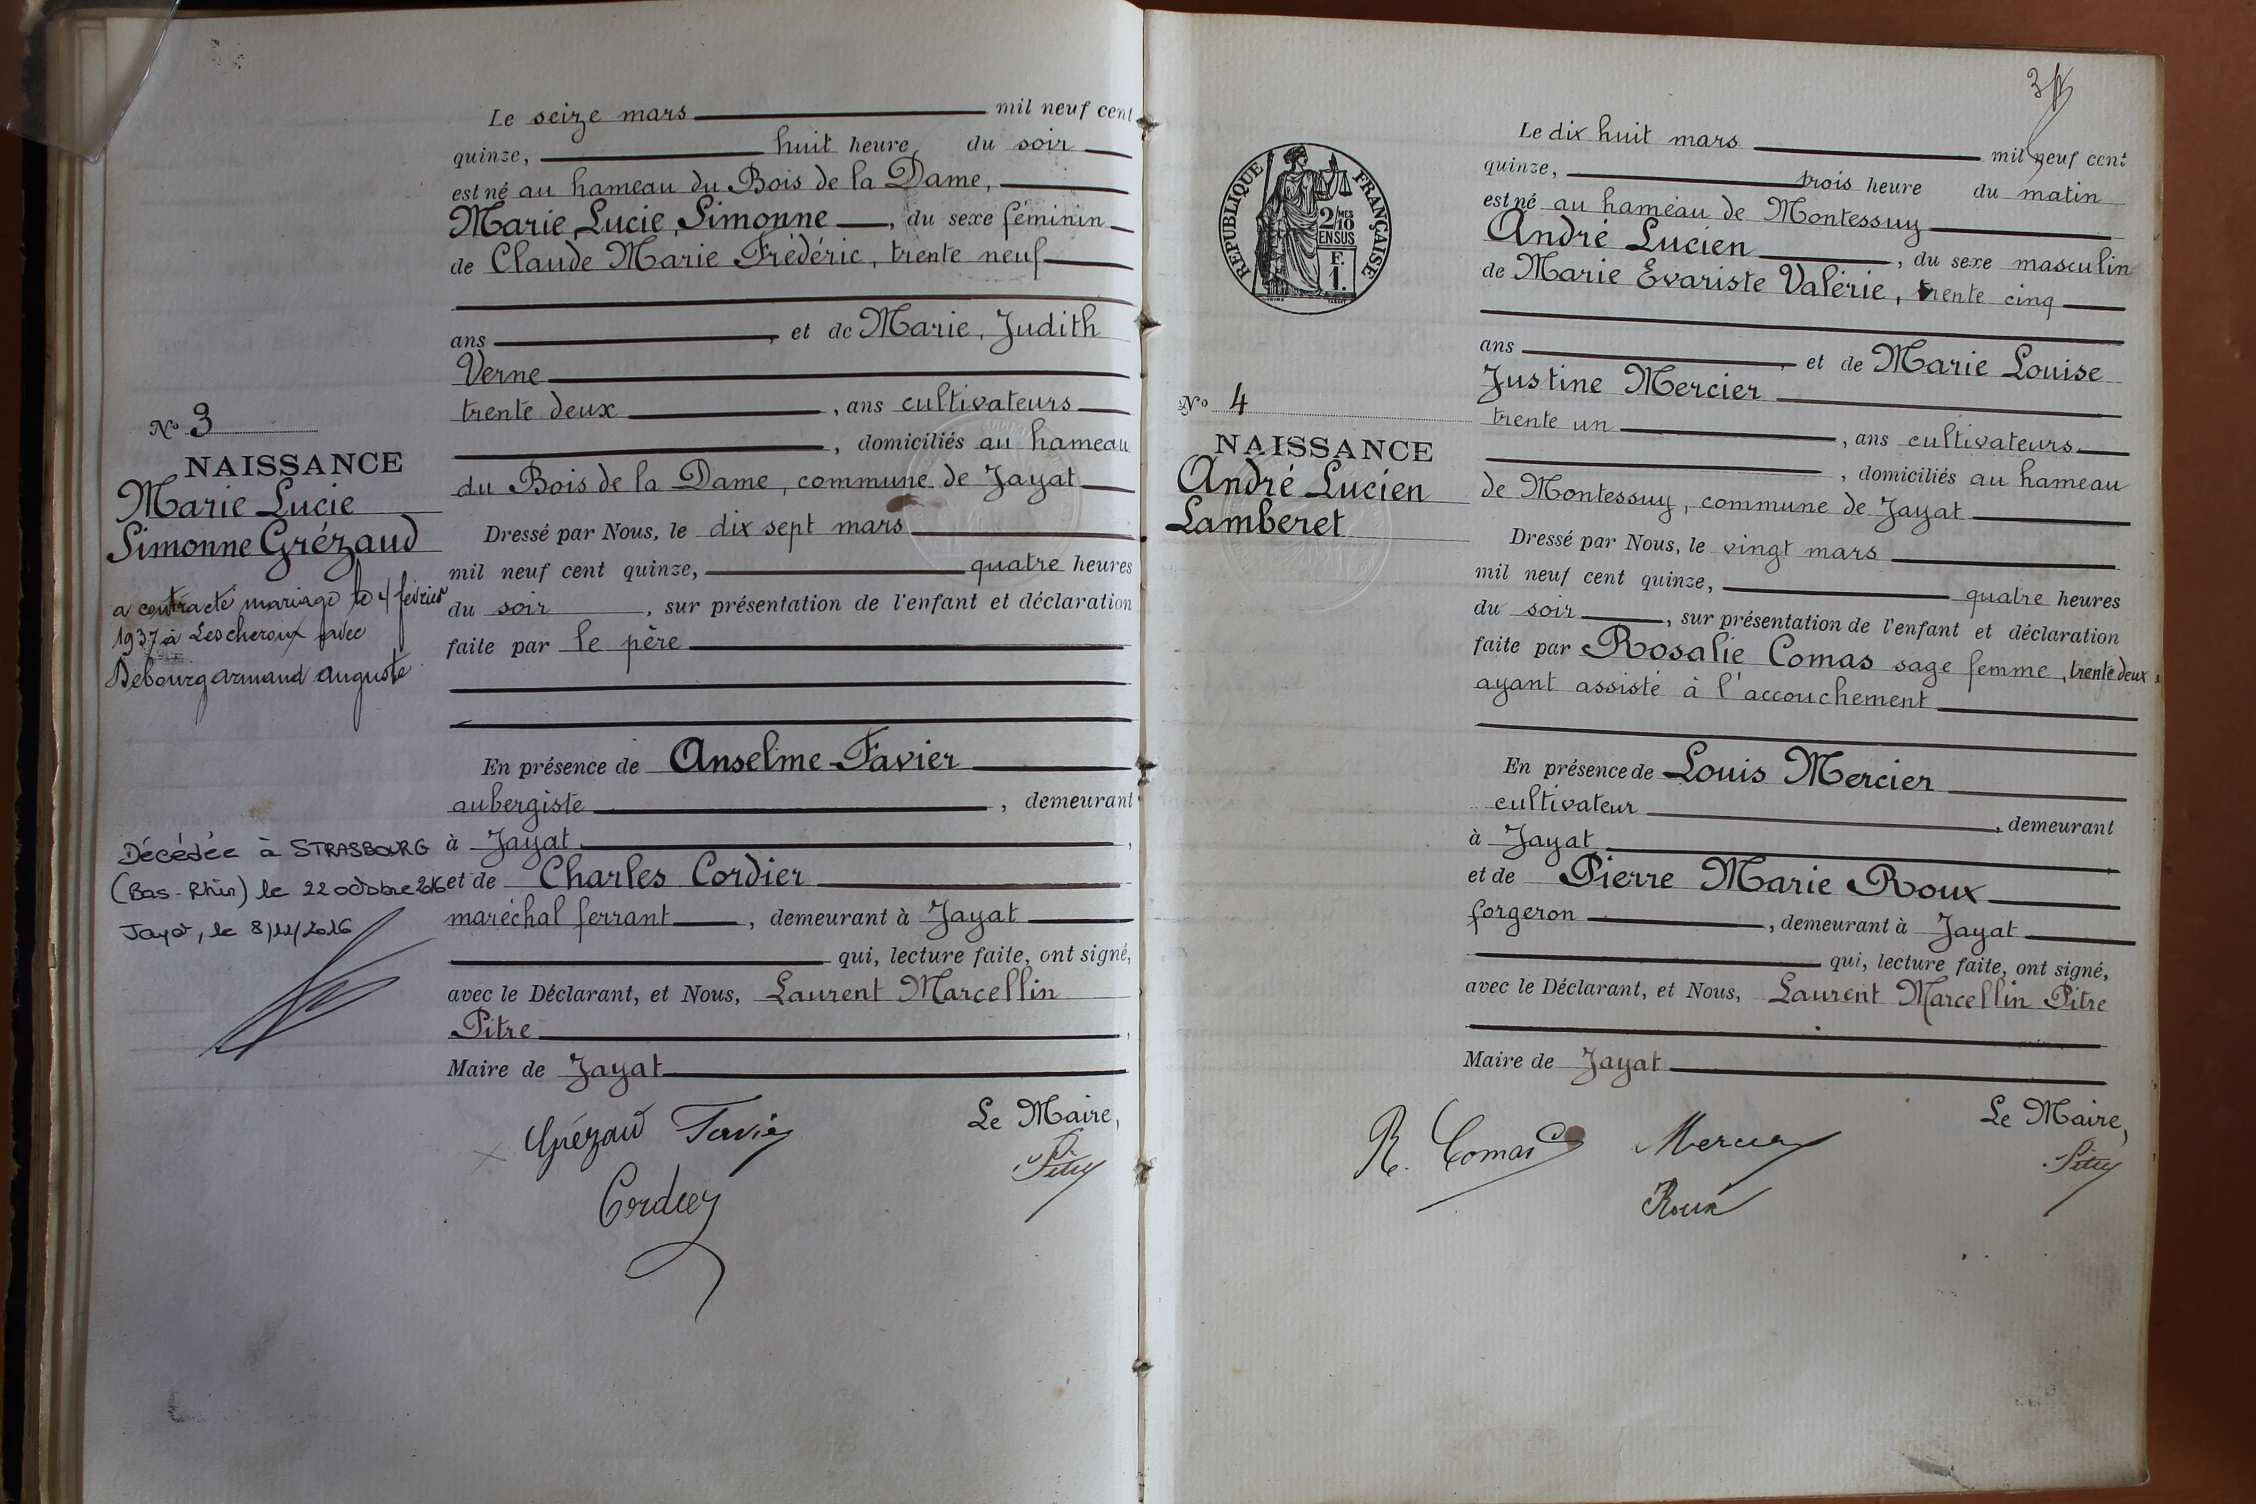 Le seize mars mil neuf cent
quinze, huit heure du soir
est né au hameau du Bois de la Dame,
Marie Lucie Simonne, du sexe féminin
de Claude Marie Frédéric, trente neuf
ans, et de Marie, Judith
Verne
trente deux, ans cultivateurs
, domiciliés au hameau
du Bois de la Dame, commune de Jayat
Dressé par Nous, le dix sept mars
mil neuf cent quinze, quatre heures
du soir, sur présentation de l'enfant et déclaration
faite par le père
En présence de Anselme Favier
aubergiste, demeurant
à Jayat,
et de Charles Cordier
maréchal ferrant, demeurant à Jayat
qui, lecture faite, ont signé,
avec le Déclarant, et Nous, Laurent Marcellin
Pitre,
Maire de Jayat
Le Maire,
Grézaud Favier
Pitre
Cordier
No 3
NAISSANCE
Marie Lucie
Simonne Grézaud
a contracté mariage le 4 février
1937 à Lescheroux avec
Debourg armand auguste
Décédée à STRASBOURG
(Bas-Rhin) le 22 octobre 2016
Jayat, le 8/11/2016
3
REPUBLIQUE FRANÇAISE
2/10 MES
EN SUS
F.
1.
Le dix huit mars mil neuf cent
quinze, trois heure du matin
est né au hameau de Montessuy
André Lucien, du sexe masculin
de Marie Evariste Valérie, trente cinq
ans, et de Marie Louise
Justine Mercier
trente un, ans cultivateurs
, domiciliés au hameau
de Montessuy, commune de Jayat
Dressé par Nous, le vingt mars
mil neuf cent quinze, quatre heures
du soir, sur présentation de l'enfant et déclaration
faite par Rosalie Comas sage femme, trente deux
ayant assisté à l'accouchement
En présence de Louis Mercier
cultivateur, demeurant
à Jayat
et de Pierre Marie Roux
forgeron, demeurant à Jayat
qui, lecture faite, ont signé,
avec le Déclarant, et Nous, Laurent Marcellin Pitre
Maire de Jayat
Le Maire,
R. Comas Mercier
Pitre
Roux
No 4
NAISSANCE
André Lucien
Lamberet